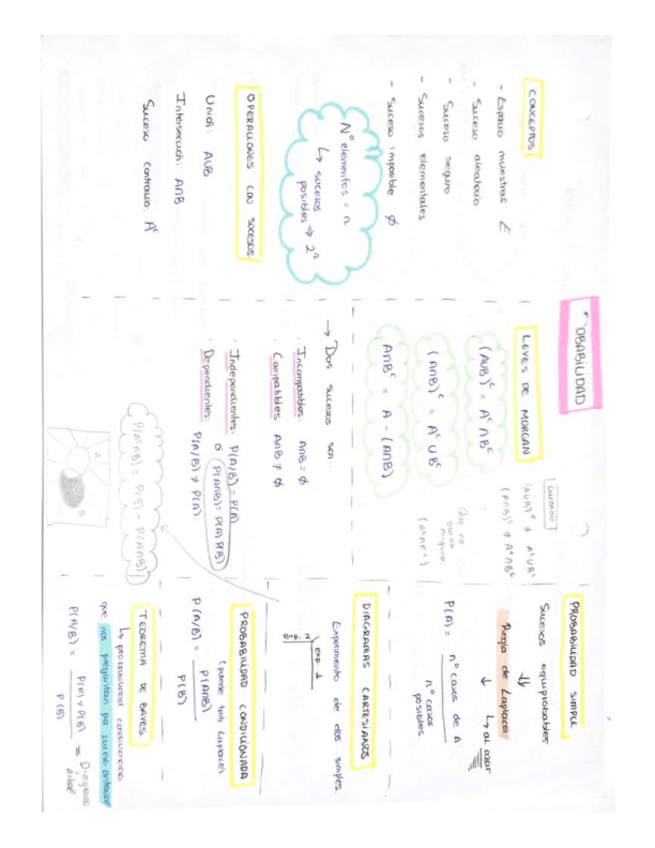 PROBABILIDAD
CONCEPTOS:
- Espacio muestral E
- Suceso aleatorio
- Suceso seguro
- Sucesos elementales
- Suceso imposible ∅
Nº elementos = n
↳ sucesos
posibles ⇒ 2ⁿ
OPERACIONES CON SUCESOS:
Unión: AUB
Intersección: A∩B
Suceso contrario: Aᶜ
LEYES DE MORGAN
(AUB)ᶜ = Aᶜ∩Bᶜ
(A∩B)ᶜ = AᶜUBᶜ
A∩Bᶜ = A - (A∩B)
CUIDADO
(AUB)ᶜ ≠ AᶜUBᶜ
(A∩B)ᶜ ≠ Aᶜ∩Bᶜ
Que no
ocurra
ninguno
→ Dos sucesos son...
· Incompatibles: A∩B = ∅
· Compatibles: A∩B ≠ ∅
· Independientes: P(A/B) = P(A)
ó P(A∩B) = P(A)·P(B)
· Dependientes: P(A/B) ≠ P(A)
A
B
PROBABILIDAD SIMPLE
Sucesos equiprobables
⇓
Regla de Laplace
↓ ↳ al azar
P(A) = nº casos de A
nº casos
posibles.
DIAGRAMAS CARTESIANOS
Experimento de dos simples.
exp. 1
exp. 2
PROBABILIDAD CONDICIONADA
(puede tmb Laplace)
P(A/B) = P(A∩B)
P(B)
TEOREMA DE BAYES
↳ probabilidad condicionada
que nos preguntan por suceso anterior
P(A/B) =
P(B)
= Diagrama
árbol